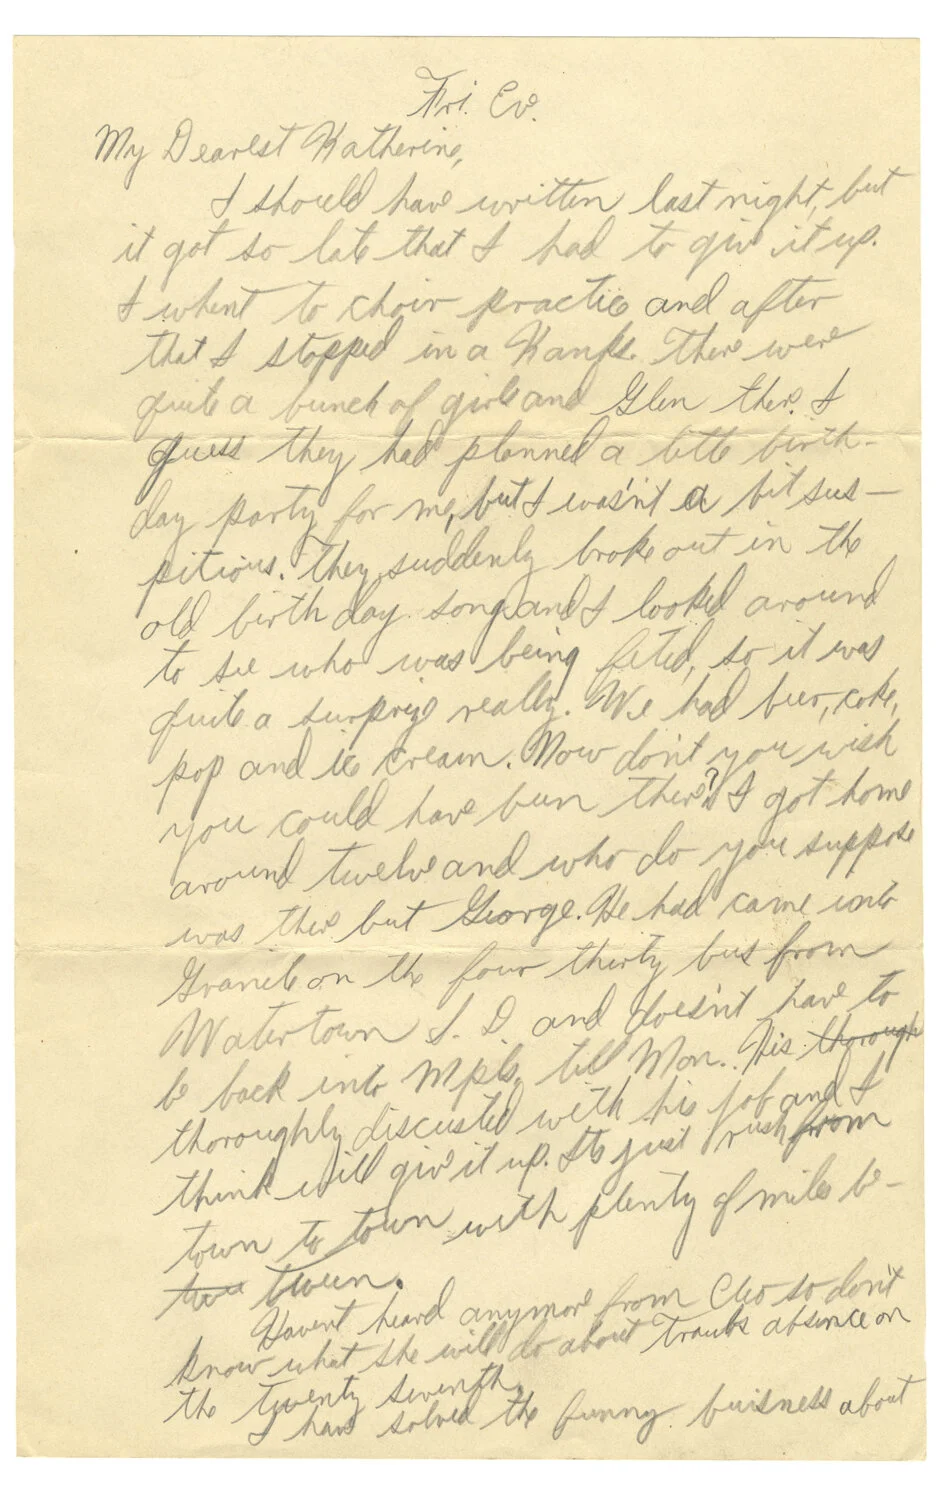 Fri. Ev.
My Dearest Katherine,
I should have written last night, but
it got so late that I had to give it up.
I whent to choir practice and after
that I stopped in a Kanfs. There were
quite a bunch of girls and Glen there. I
guess they had planned a little birth-
day party for me, but I wasn't a bit sus-
pitious. They suddenly broke out in the
old birthday song and I looked around
to see who was being feted, so it was
quite a surprize really. We had beer, coke,
pop and ice cream. Now don't you wish
you could have been there? I got home
around twelve and who do you suppose
was there but George. He had came into
Granite on the four thirty bus from
Watertown S. D. and doesn't have to
be back into Mpls. till Mon. His thorough
thoroughly discusted with his job and I
think will give it up. Its just rush from
town to town with plenty of miles be-
tween.
Havent heard anymore from Cleo so don't
know what she will do about Traubs absence on
the twenty seventh.
I have solved the funny buisness about